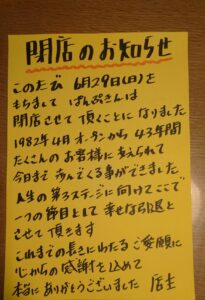 閉店のお知らせ
このたび 6月29日(日)を
もちまして ぱんぷきんは
閉店させて頂くことになりました
1982年4月オープンから43年間
たくさんのお客様に支えられて
今日まで歩んでくる事ができました
人生の第3ステージに向けてここで
一つの節目として幸せな引退と
させて頂きます
これまでの長きにわたるご愛顧に
心からの感謝を込めて
本当にありがとうございました 店主